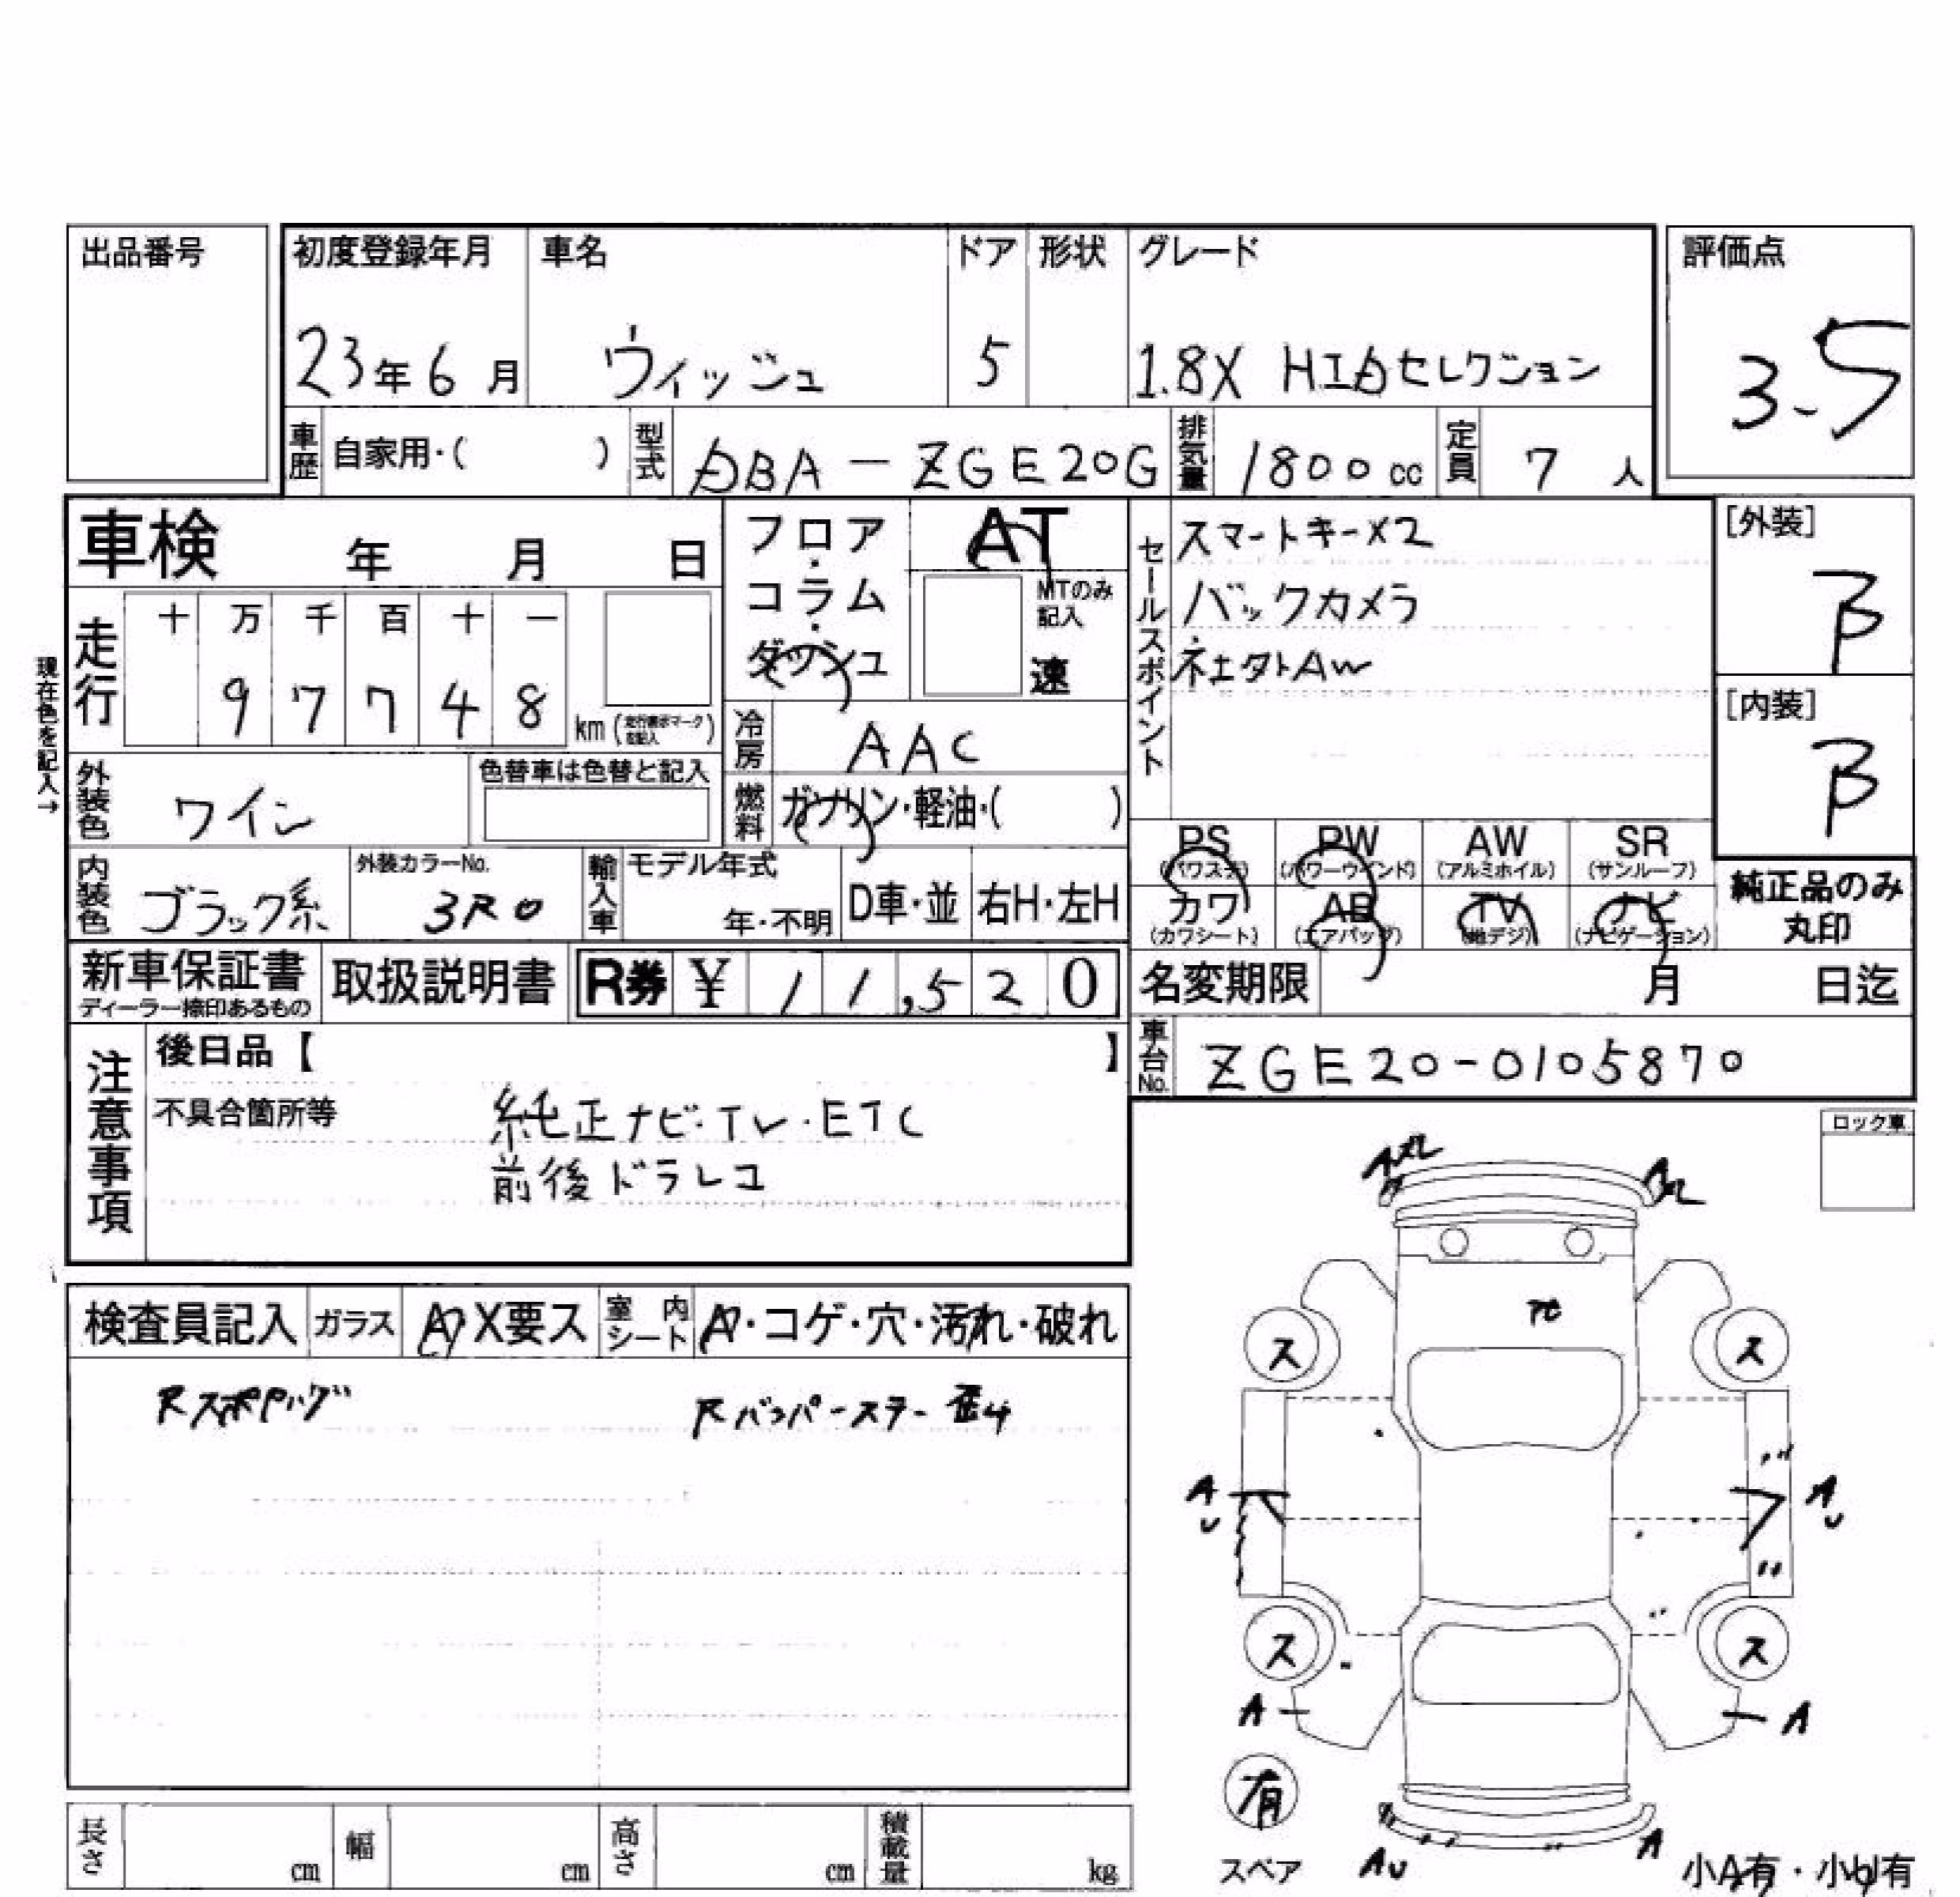 出品番号
初度登録年月 車名 ドア 形状 グレード 評価点
23年6月 ウィッシュ 5 1.8X HIDセレクション 3.5
車歴 自家用・( ) 型式 DBA-ZGE20G 排気量 1800cc 定員 7人
車検 年 月 日
フロア・コラム・ダッシュ AT
MTのみ記入 速
セールスポイント
スマートキーX2
バックカメラ
社外AW
[外装] B
[内装] B
走行 十 万 千 百 十 一
9 7 7 4 8 km (走行表示マーク記入)
現在色を記入→
冷房 AAC
外装色 ワイン 色替車は色替と記入
燃料 ガソリン・軽油・( )
PS (パワステ) PW (パワーウインド) AW (アルミホイル) SR (サンルーフ)
カワ (カワシート) AB (エアバッグ) TV (地デジ) ナビ (ナビゲーション)
純正品のみ丸印
内装色 ブラック系 外装カラーNo. 3R0 輸入車 モデル年式 年・不明 D車・並 右H・左H
新車保証書 ディーラー捺印あるもの 取扱説明書 R券 ¥ 11,520
名変期限 月 日迄
車台No. ZGE20-0105870
注意事項
後日品【 】
不具合箇所等
純正ナビ・TV・ETC
前後ドラレコ
ロック車
検査員記入 ガラス A X要ス 室内シート A・コゲ・穴・汚れ・破れ
Rバンパーステー歪み
A
ス ス
A U A U
ス ス
A A
有
スペア
AU A
小A有・小U有
長さ cm 幅 cm 高さ cm 積載量 kg